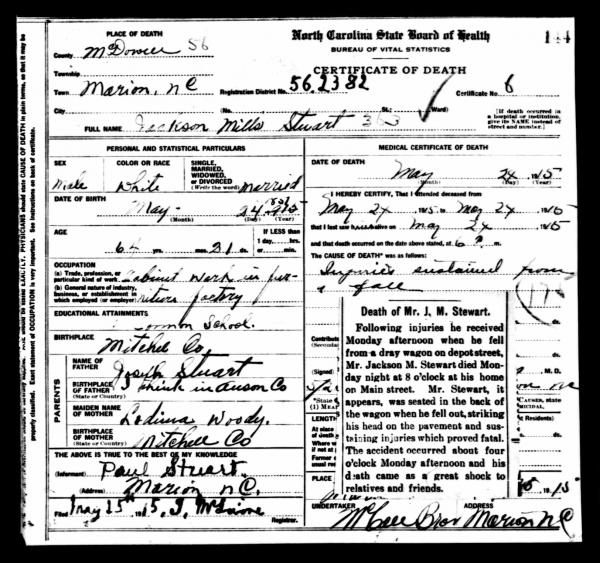 PLACE OF DEATH
County McDowell 56
Township
Town Marion, NC
City
North Carolina State Board of Health
BUREAU OF VITAL STATISTICS
CERTIFICATE OF DEATH
144
Registration District No. 56.2382 Certificate No. 6
(No. St.; Ward)
[If death occurred in a hospital or institution, give its NAME instead of street and number.]
FULL NAME Jackson Mills Stuart 363
PERSONAL AND STATISTICAL PARTICULARS
SEX
Male
COLOR OR RACE
White
SINGLE, MARRIED, WIDOWED, OR DIVORCED
(Write the word) married
DATE OF BIRTH
May 24
(Month) (Day) (Year)
AGE
64 yrs. mos. 21 ds.
If LESS than
1 day, hrs.
OCCUPATION
(a) Trade, profession, or particular kind of work Cabinet work in fur-
(b) General nature of industry, business, or establishment in which employed (or employer) niture factory
EDUCATIONAL ATTAINMENTS
Common School.
BIRTHPLACE
Mitchel Co
PARENTS
NAME OF FATHER
Joseph Stuart
BIRTHPLACE OF FATHER
(State or Country)
I think in Anson Co
MAIDEN NAME OF MOTHER
Woody.
BIRTHPLACE OF MOTHER
(State or Country)
Mitchell Co
THE ABOVE IS TRUE TO THE BEST OF MY KNOWLEDGE
(Informant) Paul Stuart
(Address) Marion NC.
Filed May 25 1915
Registrar.
MEDICAL CERTIFICATE OF DEATH
DATE OF DEATH
May 24 1915
(Month) (Day) (Year)
I HEREBY CERTIFY, That I attended deceased from
May 24 1915 to May 24 1915
that I last saw alive on May 24 1915
and that death occurred on the date above stated, at 6 P. m.
The CAUSE OF DEATH* was as follows:
Injuries sustained from
a fall
Death of Mr. J. M. Stewart.
Following injuries he received
Monday afternoon when he fell
from a dray wagon on depot street,
Mr. Jackson M. Stewart died Mon-
day night at 8 o'clock at his home
on Main street. Mr. Stewart, it
appears, was seated in the back of
the wagon when he fell out, striking
his head on the pavement and sus-
taining injuries which proved fatal.
The accident occurred about four
o'clock Monday afternoon and his
death came as a great shock to
relatives and friends.
UNDERTAKER
McCall Bros
ADDRESS
Marion NC